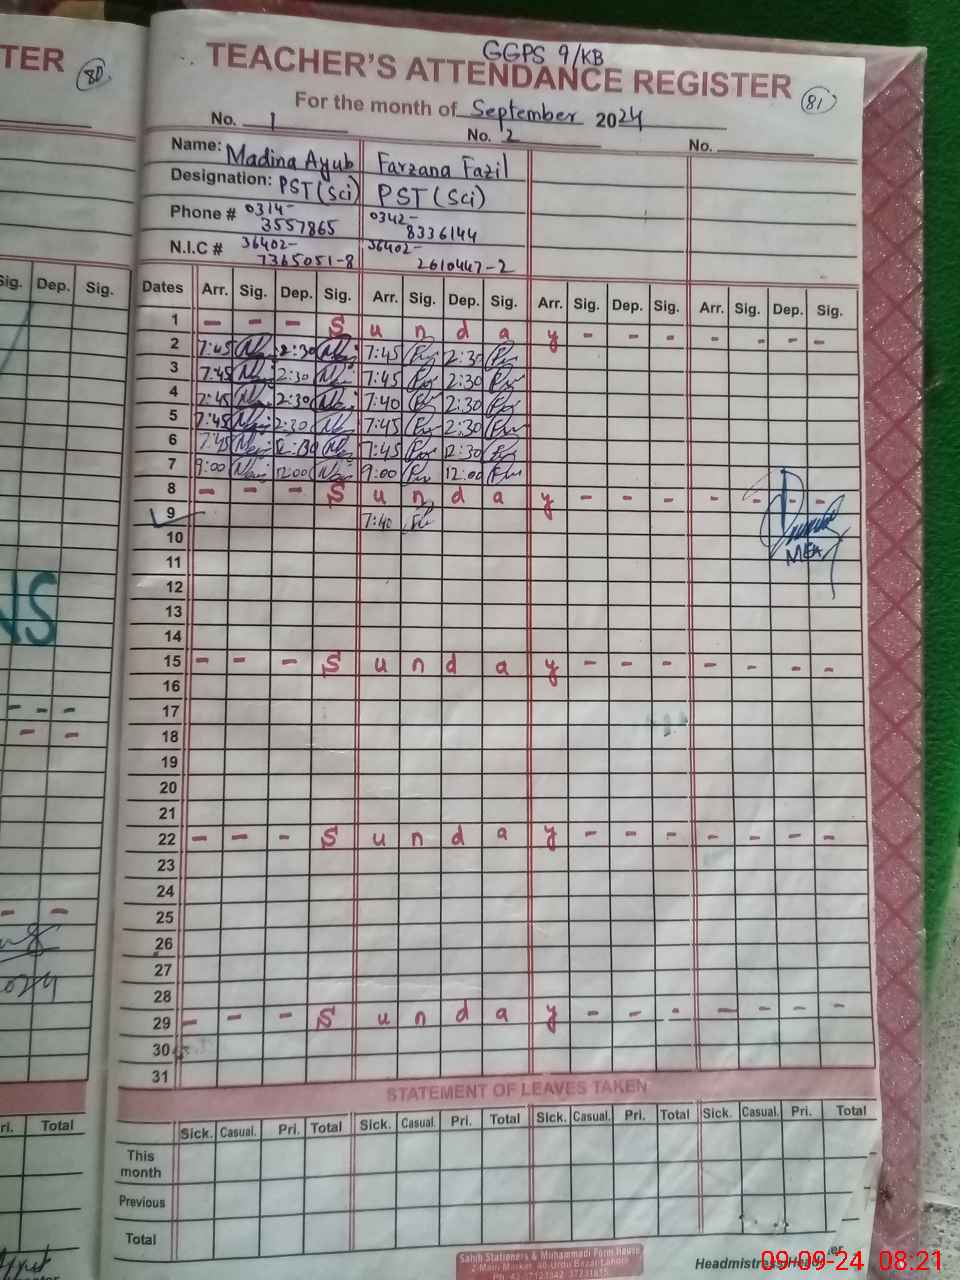 TER 80
GGPS 9/KB
TEACHER'S ATTENDANCE REGISTER 81
For the month of September 2024
No. 1 No. 2 No.
Name: Madina Ayub Farzana Fazil
Designation: PST (Sci) PST (Sci)
Phone # 0314-3557865 0342-8336144
N.I.C # 36402-7365051-8 36402-2610447-2
Sig. Dep. Sig.
Dates Arr. Sig. Dep. Sig. Arr. Sig. Dep. Sig. Arr. Sig. Dep. Sig. Arr. Sig. Dep. Sig.
1 - - - S u n d a y - - - - - - -
2 7:45 2:30 7:45 2:30
3 7:45 2:30 7:45 2:30
4 7:45 2:30 7:40 2:30
5 7:45 2:30 7:45 2:30
6 7:45 12:30 7:45 12:30
7 9:00 12:00 9:00 12:00
8 - - - S u n d a y - - - - - - -
9 7:40
MEA
10
11
12
13
14
15 - - - S u n d a y - - - - - - -
16
17
18
19
20
21
22 - - - S u n d a y - - - - - - -
23
24
25
26
27
28
29 - - - S u n d a y - - - - - - -
30
31
STATEMENT OF LEAVES TAKEN
ri. Total
Sick. Casual. Pri. Total Sick. Casual. Pri. Total Sick. Casual. Pri. Total Sick. Casual. Pri. Total
This month
Previous
Total
Sahib Stationers & Muhammadi Form house
2-Main Market, 40-Urdu Bazar Lahore
Headmistress/Head
09-09-24 08:21